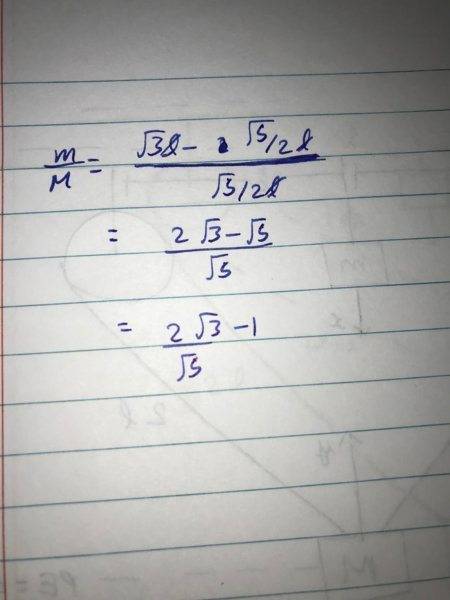 m/M = (√3l - √5/2 l) / (√5/2 l)
= (2√3 - √5) / √5
= 2√3/√5 - 1